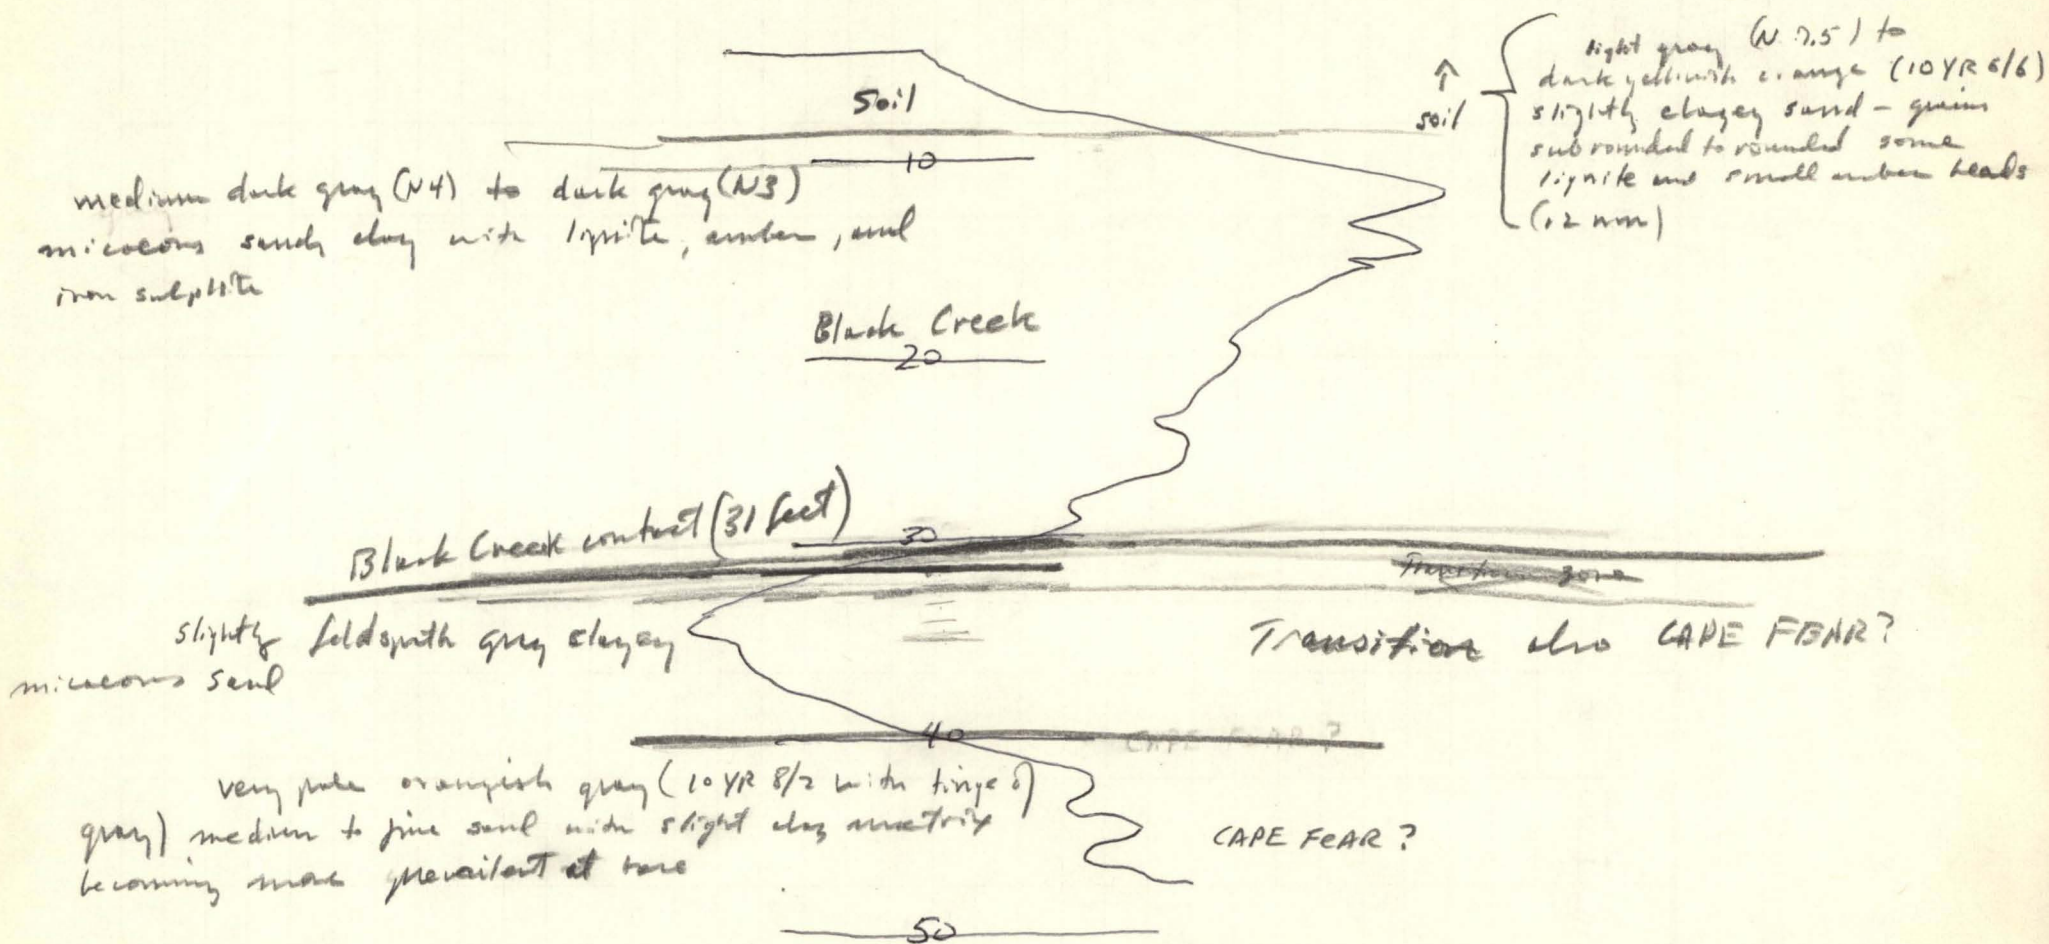 light gray (N 7.5) to
dark yellowish orange (10 YR 6/6)
slightly clayey sand - grains
subrounded to rounded some
lignite and small amber beads
(.2 mm)
↑
soil
Soil
10
medium dark gray (N4) to dark gray (N3)
micaceous sandy clay with lignite, amber, and
iron sulphite
Black Creek
20
Black Creek contact (31 feet)
30
Transition zone
slightly feldspath gray clayey
micaceous sand
Transition also CAPE FEAR?
40
CAPE FEAR?
very pale orangish gray (10 YR 8/2 with tinge of
gray) medium to fine sand with slight clay matrix
becoming more prevailent at base
CAPE FEAR?
50